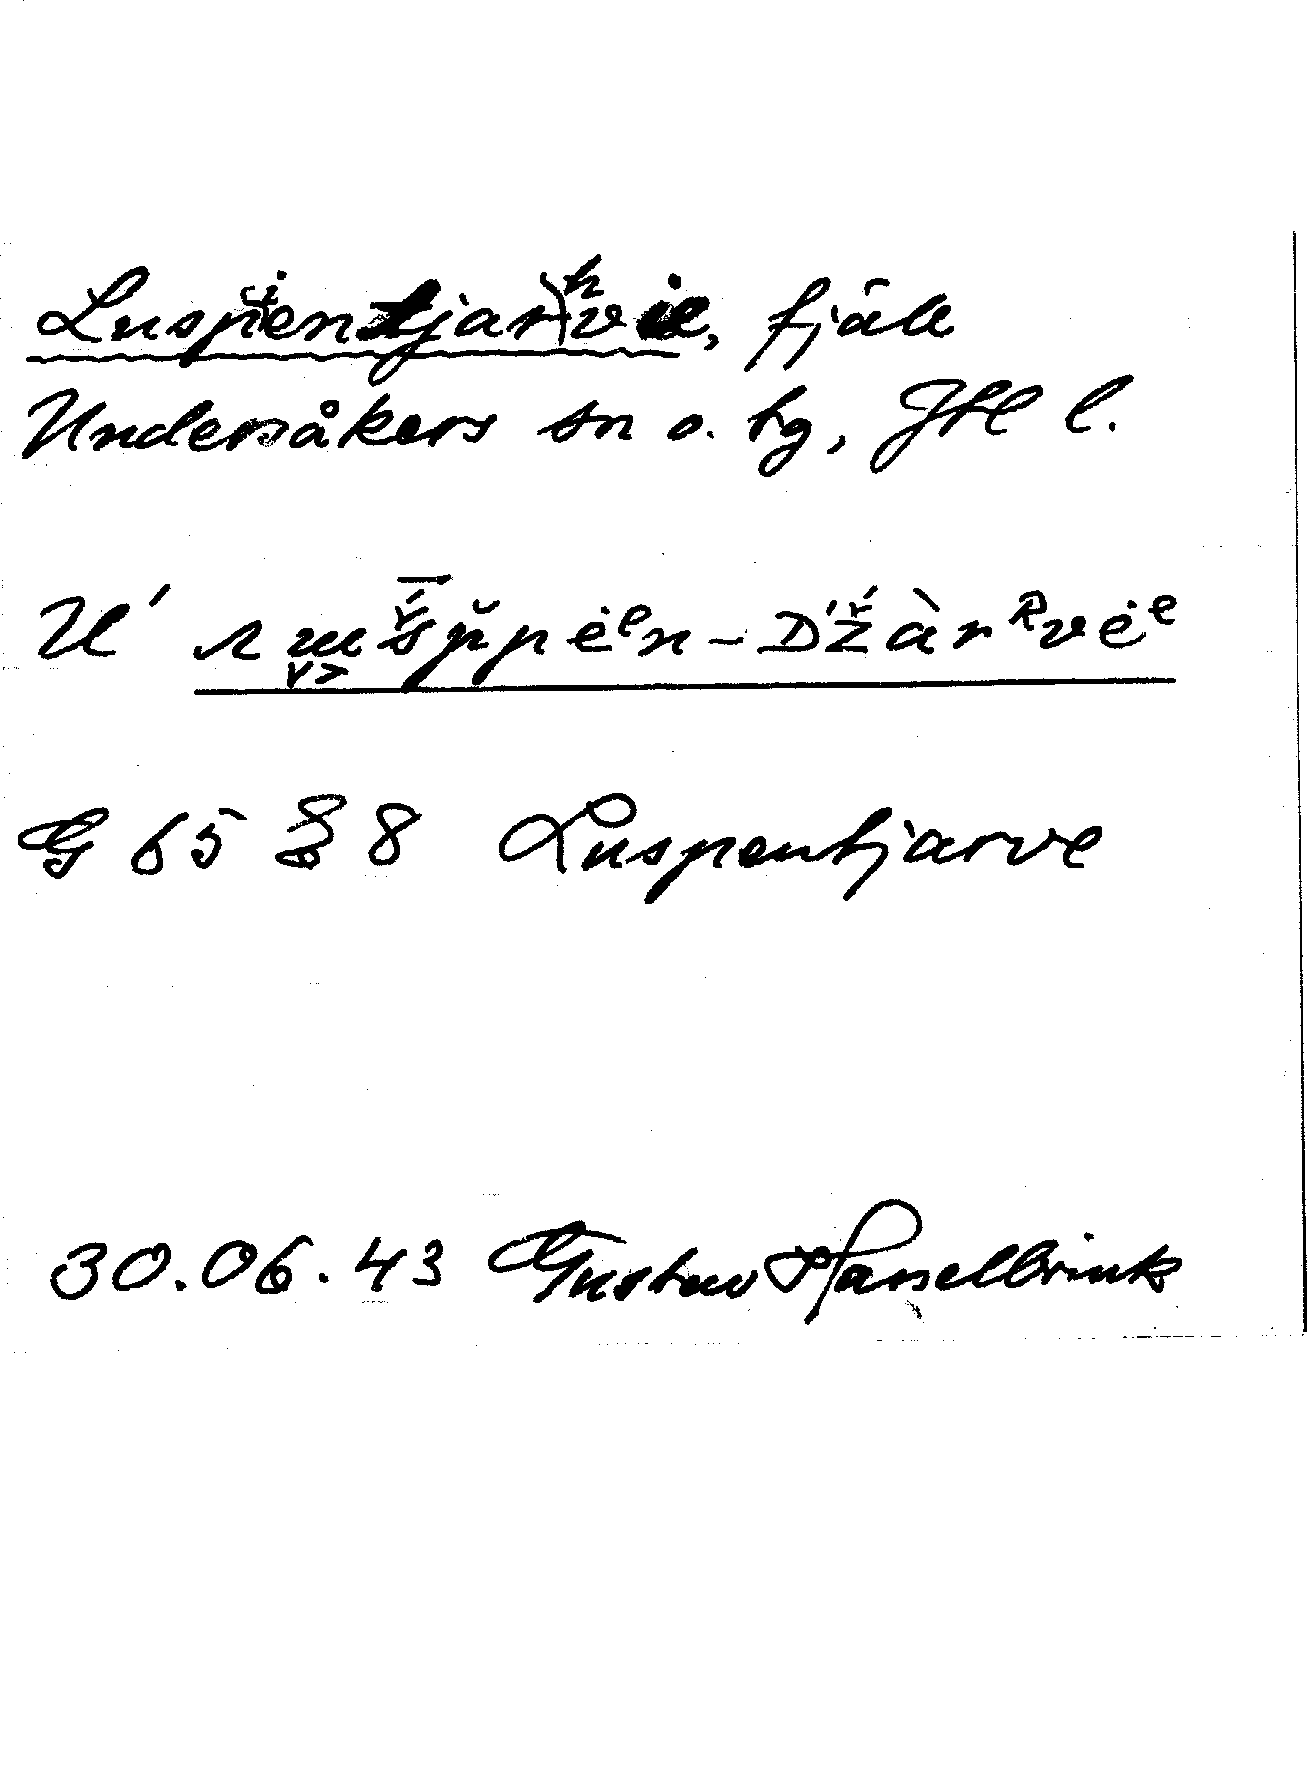 Luspientjarhvie, fjäll
Undersåkers sn o. tg, Jtl l.
U′
G 65 § 8 Luspentjarve
30.06.43 Gustav Hasselbrink